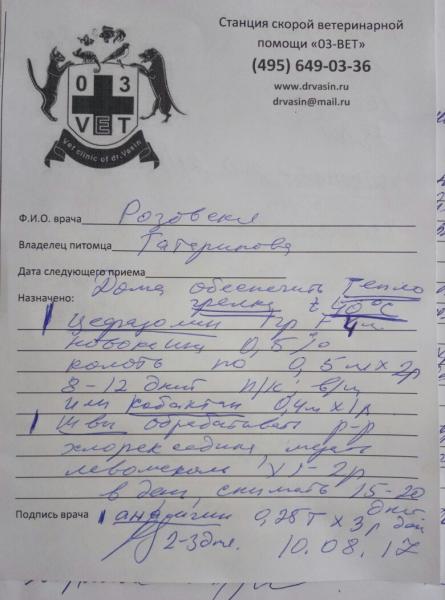 03
VET
Vet clinic of dr.Vasin
Станция скорой ветеринарной
помощи «ОЗ-ВЕТ»
(495) 649-03-36
www.drvasin.ru
drvasin@mail.ru
Ф.И.О. врача Розовская
Владелец питомца Гатаринова
Дата следующего приема
Дома обеспечить тепло
Назначено: грелка t 40°C
Цефазолин 1гр + 4мл
новокаина 0,5%
колоть по 0,5мл х 2р
8-12 дней п/к в/м
или кобактан 0,4мл х 1р
Швы обрабатывать р-р
хлоргексидина, мазать
левомеколь 1-2р
в день, снимать 15-20
дней
Подпись врача анальгин 0,25т х 3р день
2-3дня. 10.08.17